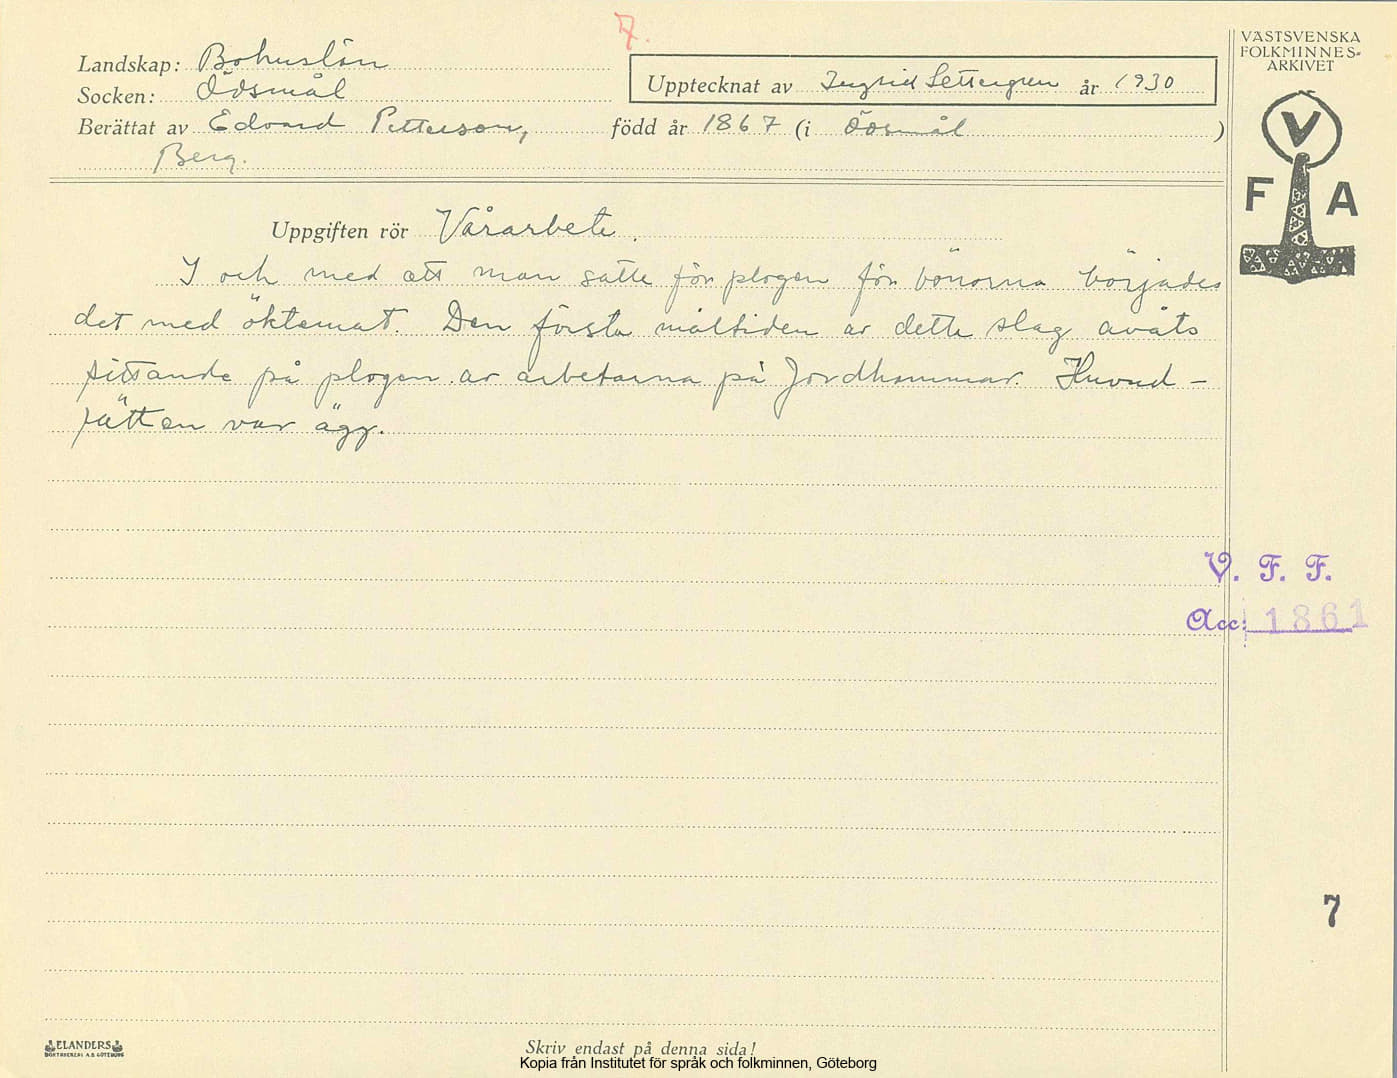 7.
Landskap: Bohuslän
Socken: Ödsmål
Upptecknat av Ingrid Settergren år 1930
Berättat av Edvard Petterson, född år 1867 (i Ödsmål )
Berg.
VÄSTSVENSKA
FOLKMINNES-
ARKIVET
V
F A
Uppgiften rör Vårarbete.
I och med att man satte för plogen för bönorna började
det med öktamat. Den första måltiden av detta slag avåts
sittande på plogen av arbetarna på Jordhammar. Huvud-
rätten var ägg.
V. F. F.
Acc: 1861
7
ELANDERS
BOKTRYCKERI A.B. GÖTEBORG
Skriv endast på denna sida!
Kopia från Institutet för språk och folkminnen, Göteborg